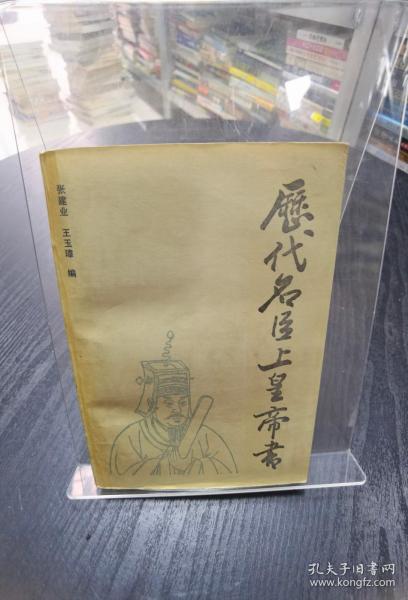 歷代名臣上皇帝书
张建业 王玉璋 编
孔夫子旧书网
www.kongfz.com